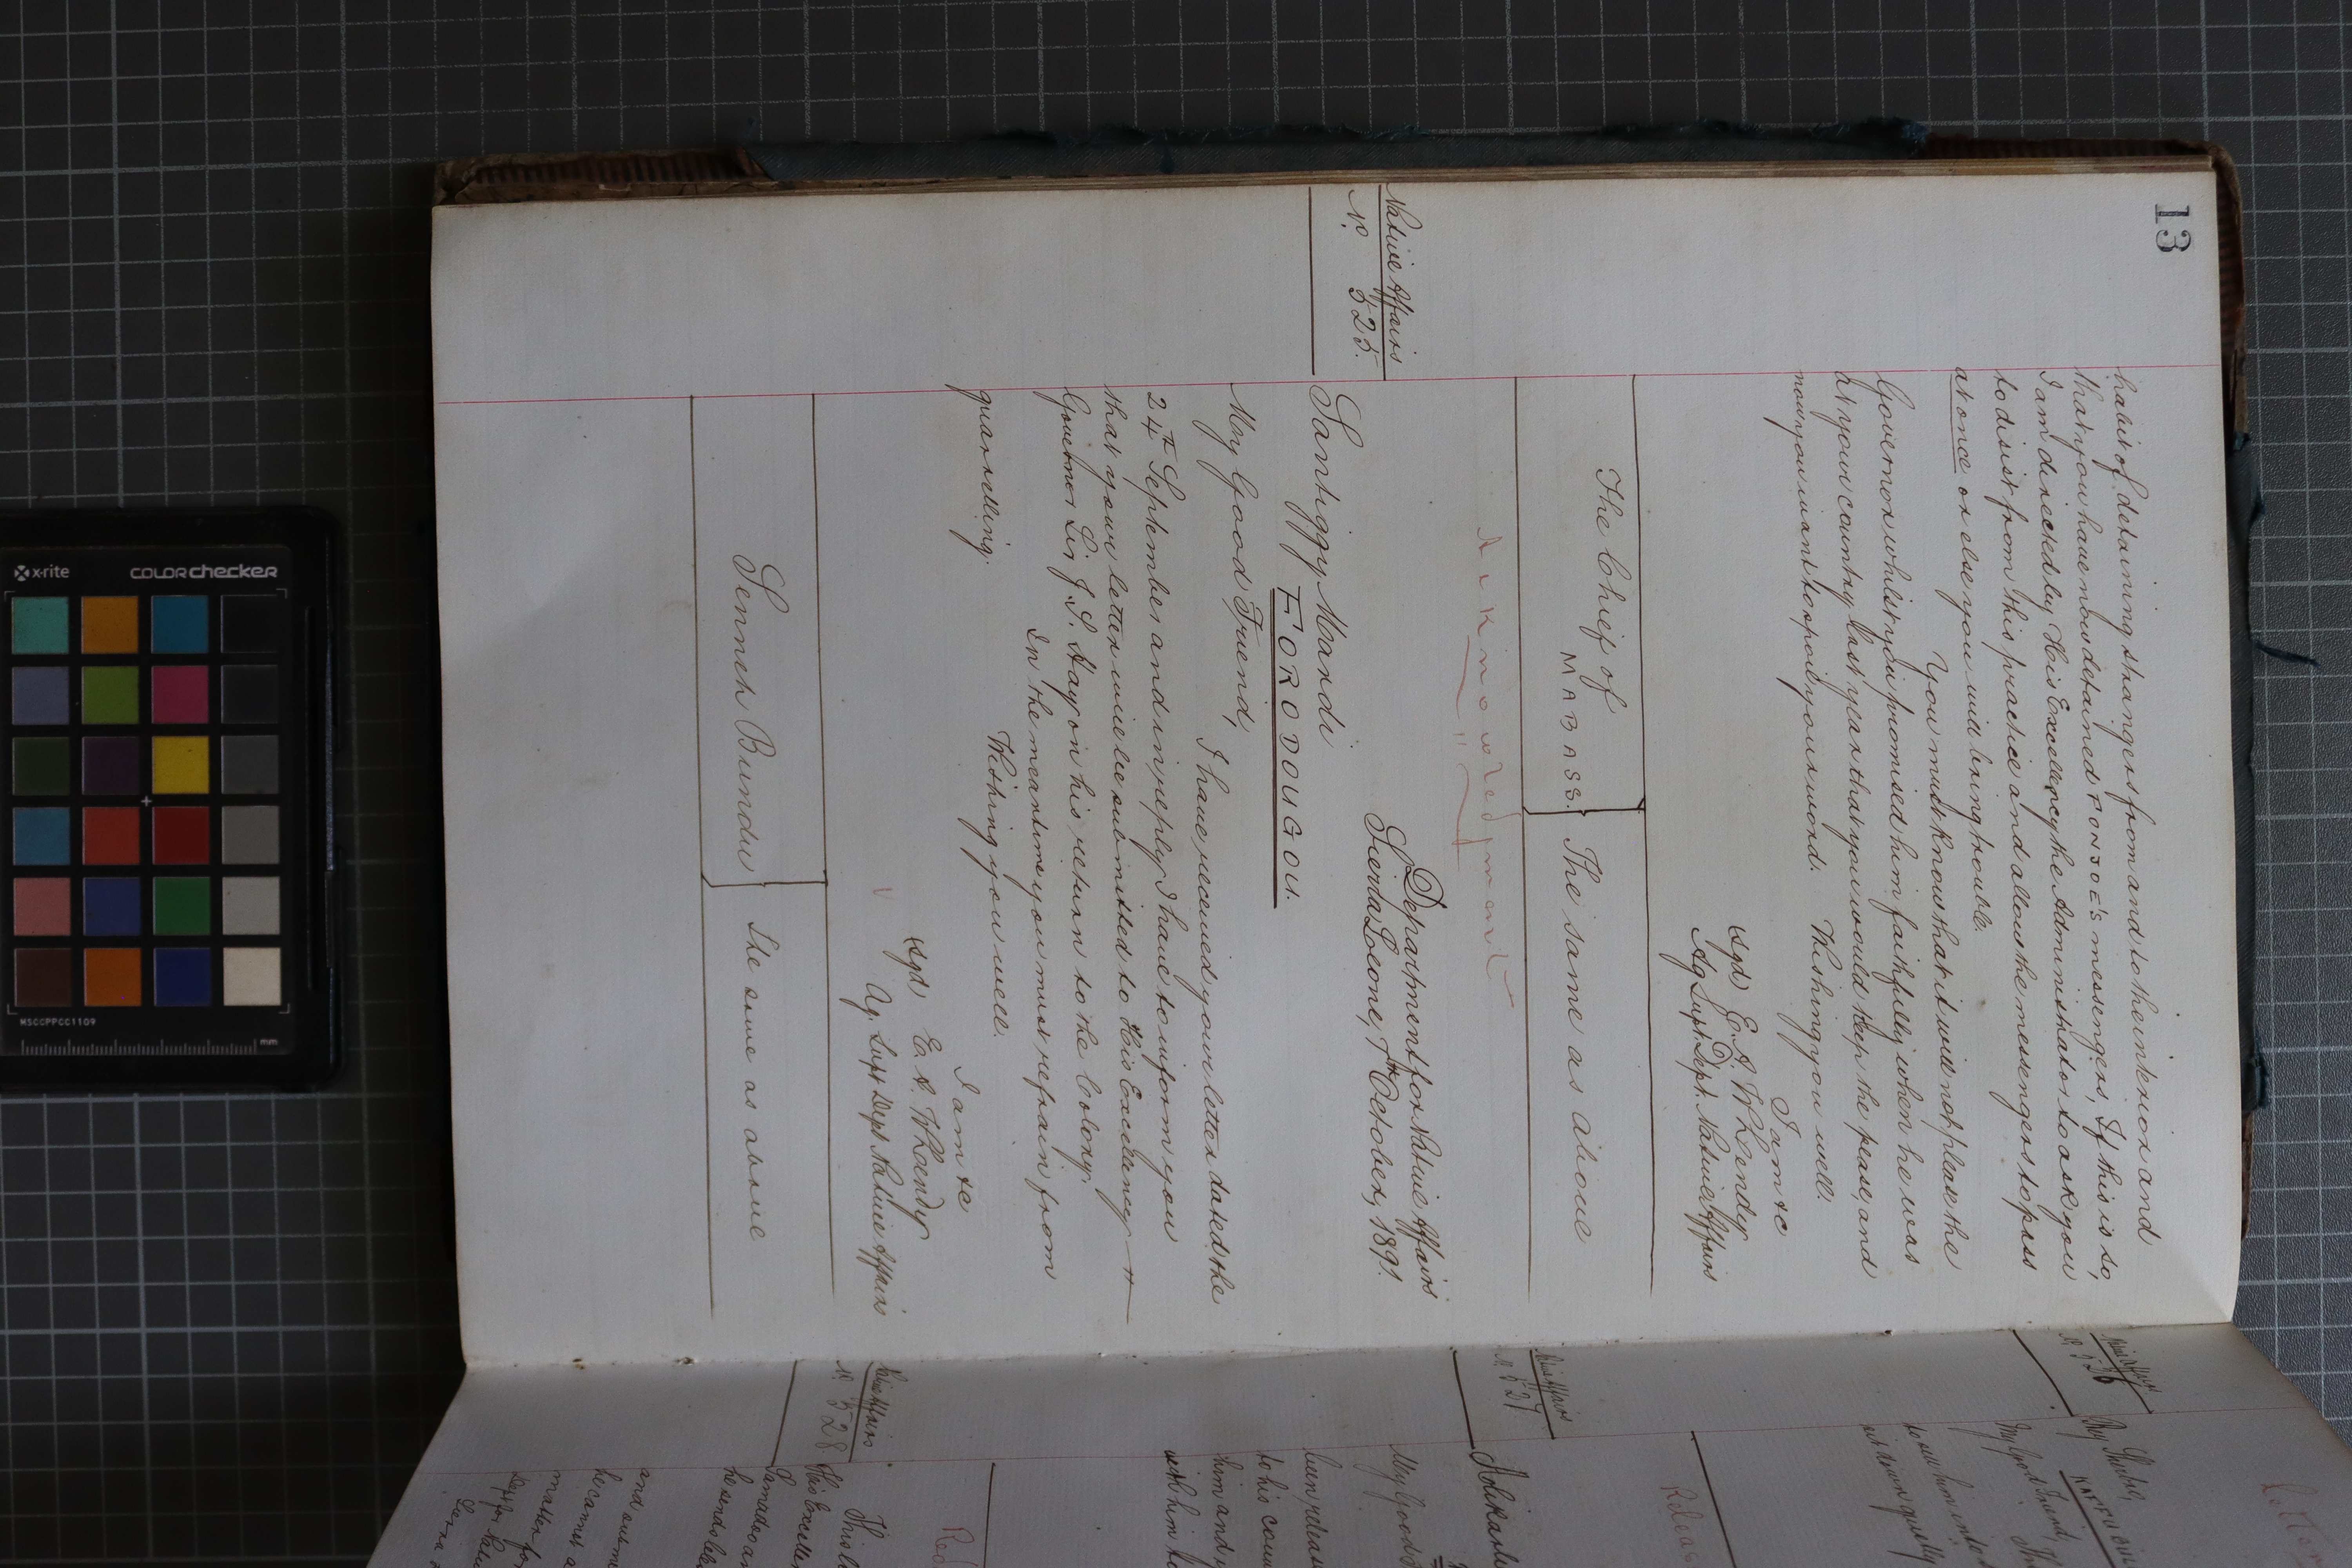 13
habit of detaining strangers from and to the interior and
that you have now detained FONJOE'S messengers, If this is so,
I am directed by His Excellency the Administrator to ask you
to disist from this practice and allow the messengers to pass
at once or else you will bring trouble.
You must know that it will not please the
Governor whilst you promised him faithfully when he was
at your country last year that you would keep the pease, and
now you want to spoil your word.
Wishing you well.
I am &c
(Sgd) E. A. Whendy
Ag Supt. Dept. Native Affairs
The Chief of
MABASS.
The same as above
Acknowledgment
Native Affairs
No. 525.
Department for Native Affairs
Sierra Leone, 7th October, 1891.
Santiggy Mandi
FORODOUGOU.
My Good Friend,
I have received your letter dated the
24th September and in reply I have to inform you
that your letter will be submitted to His Excellency
Governor Sir J. S. Hay on his return to the Colony.
In the meantime you must refrain from
quarrelling.
Wishing you well.
I am &c
(Sgd) E. A. Whendy
Ag. Supt Dept Native Affairs
Senneh Bundu
The same as above
No 526
My Good Friend,
No 527
My Good
to his coun
him and
with him to
No 528
His Excellen
he sends
he cannot a
matter for
x-rite
colorchecker
MSCCPPCC1109
mm